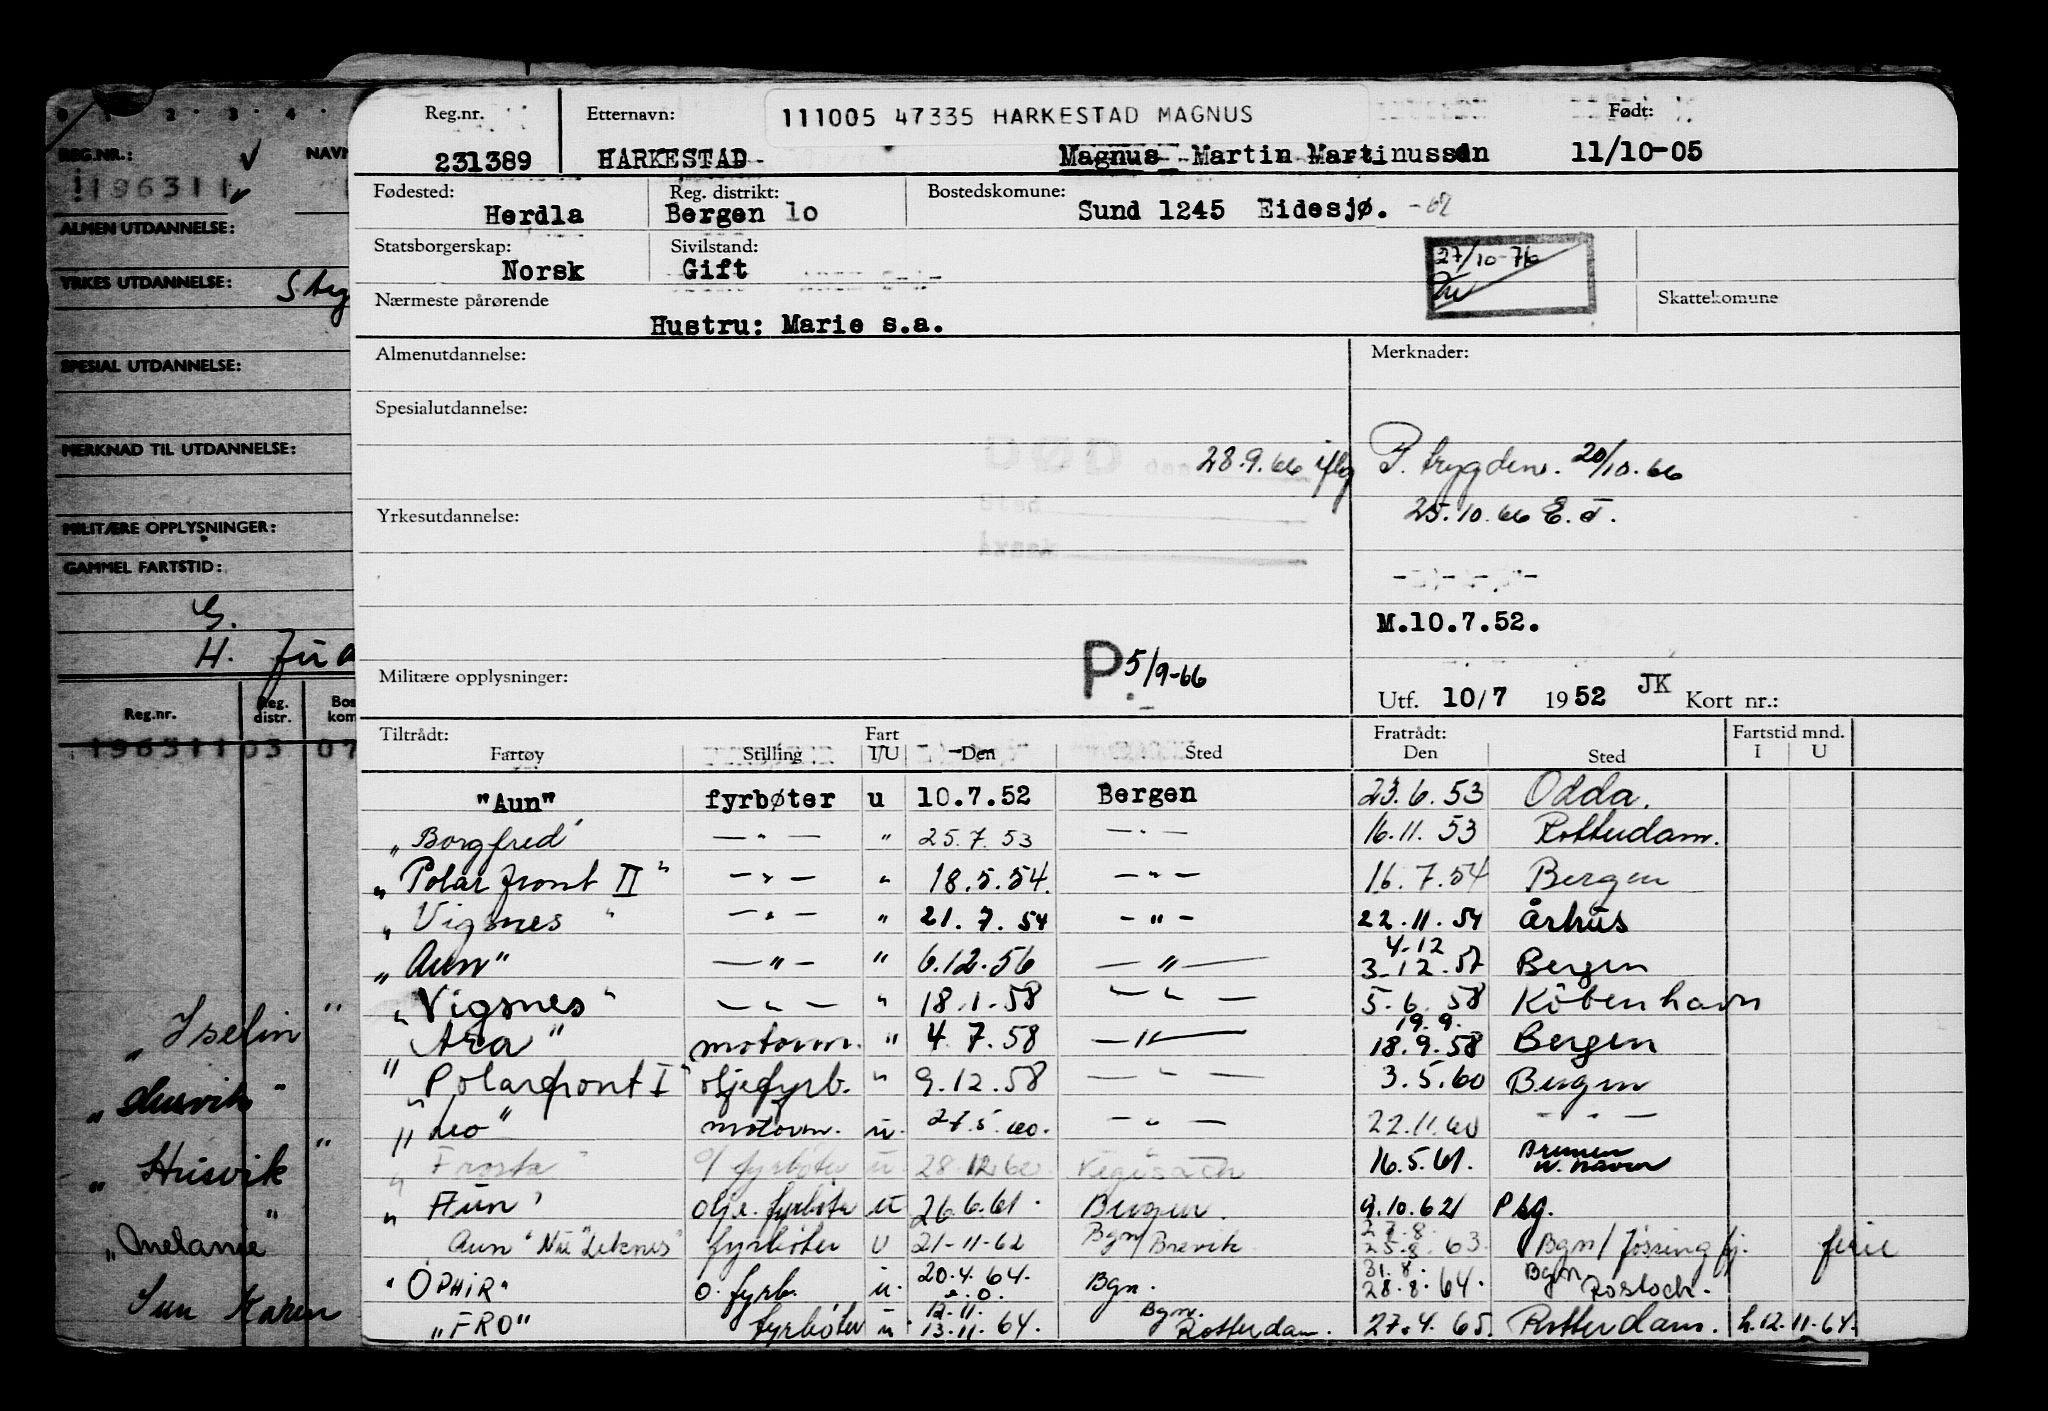 0 1 2 3 4
REG.NR.: NAVN
196311
ALMEN UTDANNELSE:
YRKES UTDANNELSE:
SPESIAL UTDANNELSE:
MERKNAD TIL UTDANNELSE:
MILITÆRE OPPLYSNINGER:
GAMMEL FARTSTID:
G.
H.
Reg.nr. Reg. distr. Bos kom
196311 03 07
"Iselin"
"Husvik"
"Husvik"
"Melanie"
Sun Karen
Reg.nr. Etternavn: 111005 47335 HARKESTAD MAGNUS Født:
231389 HARKESTAD Magnus Martin Martinussen 11/10-05
Fødested: Reg. distrikt: Bostedskomune:
Herdla Bergen 10 Sund 1245 Eidesjø.
Statsborgerskap: Sivilstand:
Norsk Gift 27/10-76
Nærmeste pårørende Skattekomune
Hustru: Marie s.a.
Almenutdannelse: Merknader:
Spesialutdannelse:
DØD den 28.9.66 iflg P. trygden. 20/10.66
Sted 25.10.66 E.T.
Yrkesutdannelse:
Årsak
M.10.7.52.
Militære opplysninger: P. 5/9-66
Utf. 10/7 1952 JK Kort nr.:
Tiltrådt: Fart Fratrådt: Fartstid mnd.
Fartøy Stilling I/U Den Sted Den Sted I U
"Aun" fyrbøter u 10.7.52 Bergen 23.6.53 Odda.
"Borgfred" — " — " 25.7.53 — " — 16.11.53 Rotterdam.
"Polarfront II" — " — " 18.5.54. — " — 16.7.54 Bergen
"Vigsnes" — " — " 21.7.54 — " — 22.11.54 Århus
4.12
"Aun" — " — " 6.12.56 — " — 3.12.57 Bergen
"Vigsnes" — " — " 18.1.58 — " — 5.6.58 Köbenhavn
19.9.
"Ara" motorm. " 4.7.58 — " — 18.9.58 Bergen
"Polarfront I" oljefyrb. " 9.12.58 — " — 3.5.60 Bergen
"Leo" motorm. u. 27.5.60. — " — 22.11.60 — " —
"Frosta" o/fyrbøter u 28.12.60 Vegesack 16.5.61. Bremen
"Aun" olje.fyrbøter u 26.6.61. Bergen. 9.10.62 Psg.
27.8.
Aun "Nu "Leknes" fyrbøter U 21-11-62 Bgn/Brevik 25.8.63. Bgn/Jøssingfj. ferie
31.8.
"OPHIR" o.fyrb. u. 20.4.64. Bgn. 28.8.64. Bgn Rostock.
12.11. Bgn.
"FRO" fyrbøter u 13.11.64. Rotterdam. 27.4.65. Rotterdam. h.12.11.64.